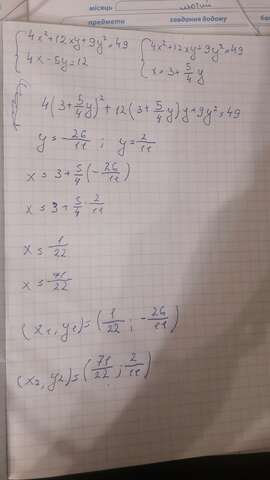 місяць
предмети
завдання додому
{4x²+12xy+9y²=49
4x-5y=12
{4x²+12xy+9y²=49
x=3+5/4 y
4(3+5/4 y)²+12(3+5/4 y)y+9y²=49
y=-26/11 ; y=2/11
x=3+5/4(-26/11)
x=3+5/4·2/11
x=1/22
x=71/22
(x₁,y₁)=(1/22 ; -26/11)
(x₂,y₂)=(71/22 ; 2/11)